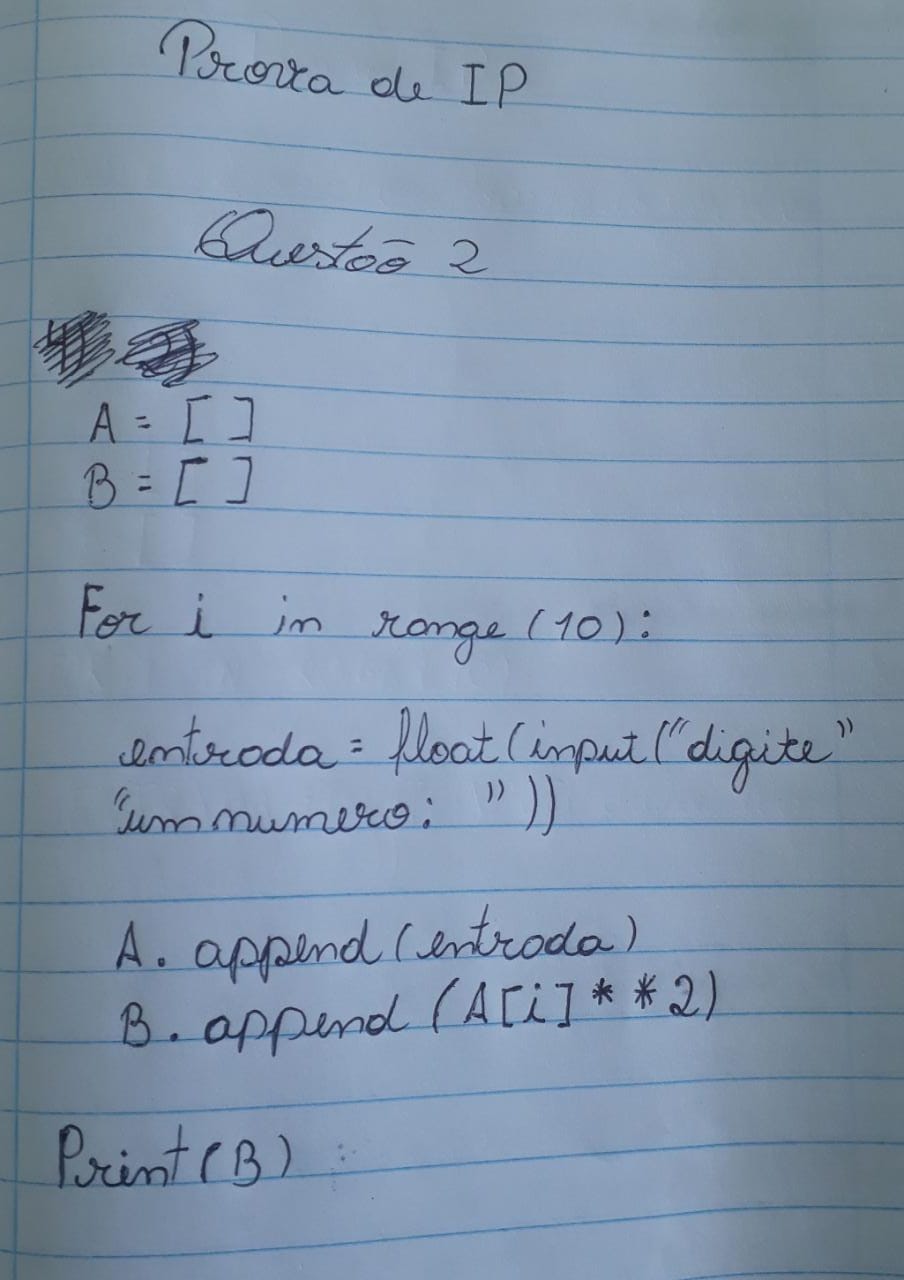 Prova de IP
Questão 2
A = [ ]
B = [ ]
For i in range (10):
entrada = float (input ("digite"
"um numero: "))
A. append (entrada)
B. append (A[i] * * 2)
Print (B)